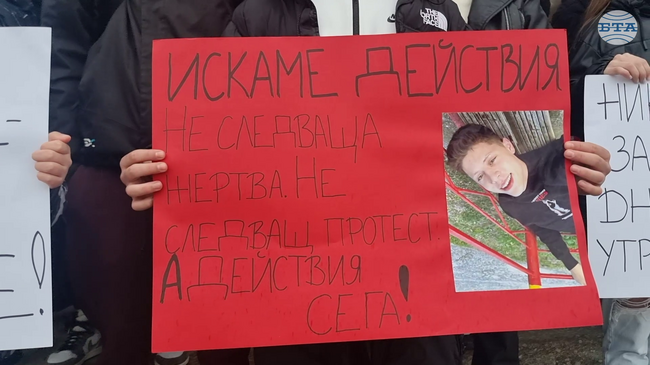 БТА
THE
NORTH
FACE
ИСКАМЕ ДЕЙСТВИЯ
НЕ СЛЕДВАЩА
ЖЕРТВА. НЕ
СЛЕДВАЩ ПРОТЕСТ
А ДЕЙСТВИЯ
СЕГА!
Е!
ЗА
ДН
УТР